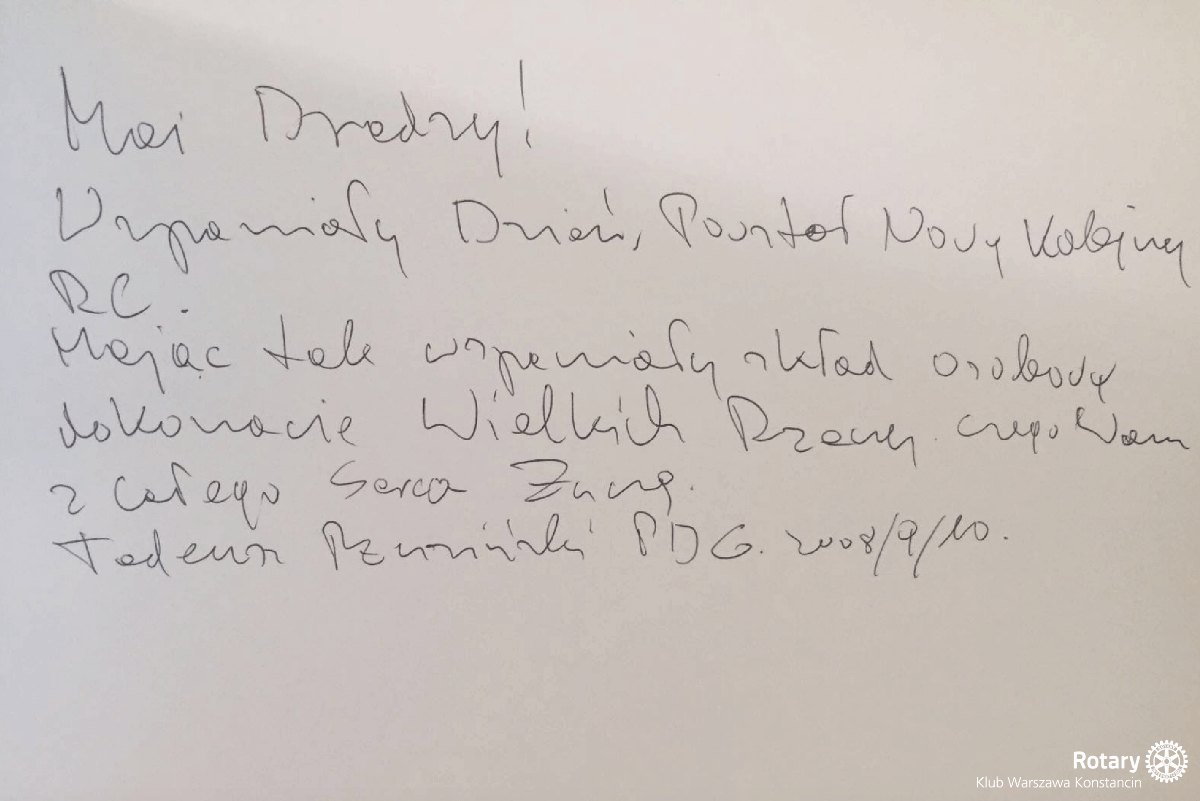 Moi Drodzy!
Wspaniały Dzień, Powstał Nowy Kolejny
RC.
Mając tak wspaniały skład osobowy
dokonacie Wielkich Rzeczy. czego Wam
z całego Serca Życzę.
Tadeusz PDG. 2008/9/10.
Rotary
Klub Warszawa Konstancin